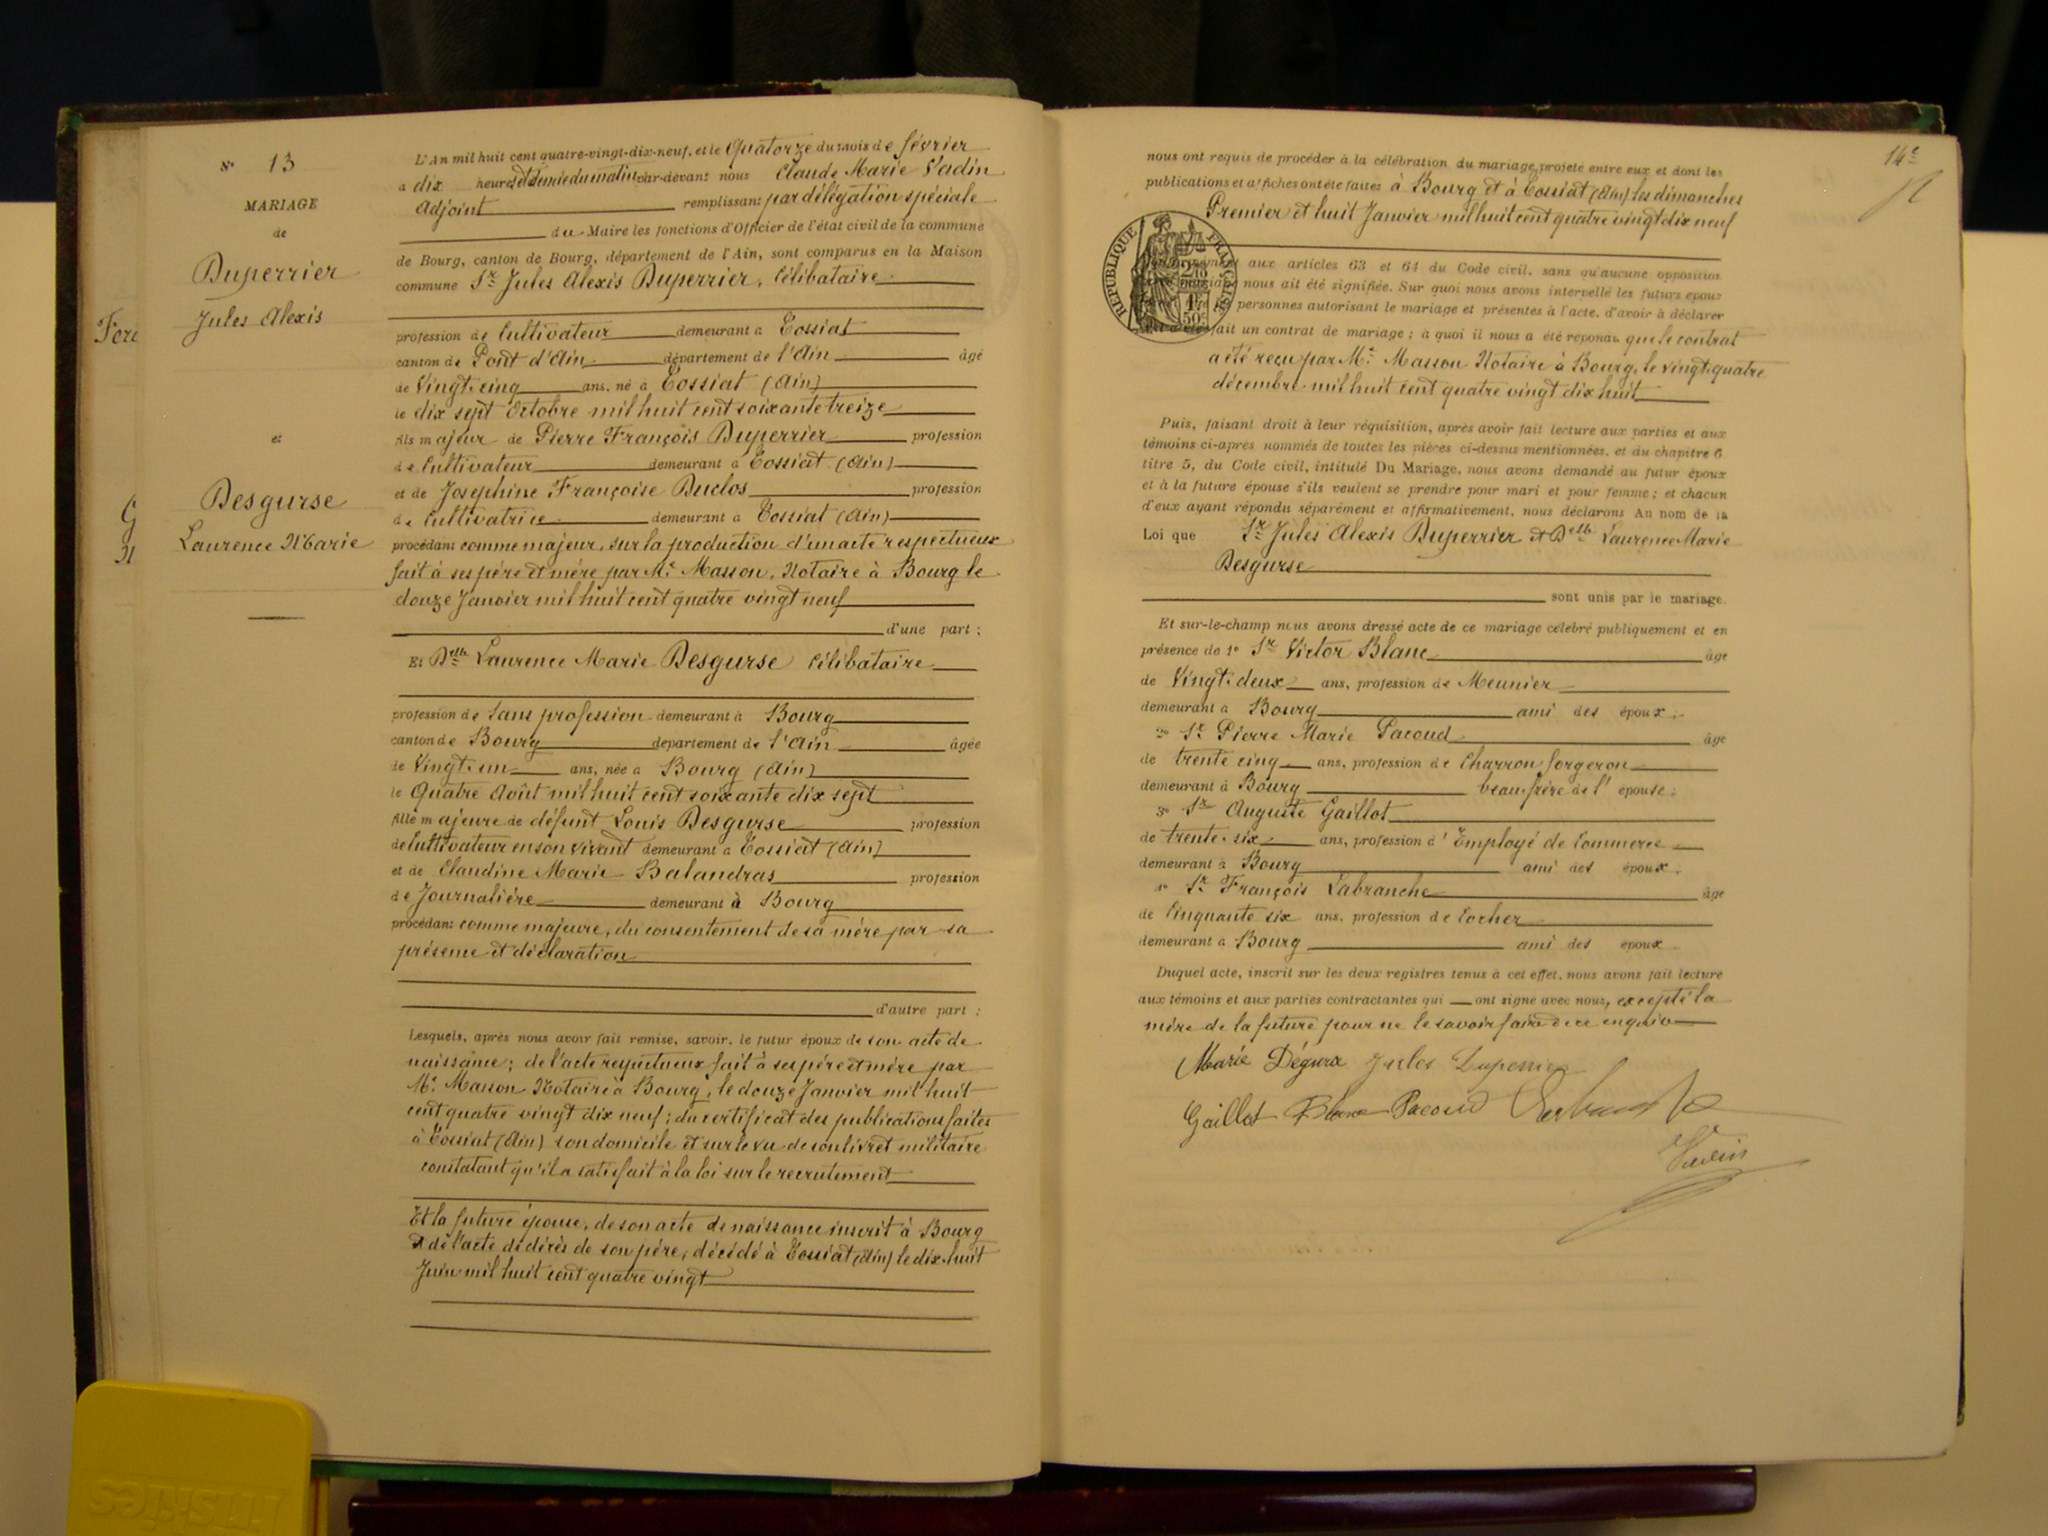 N° 13
MARIAGE
de
Duperrier
Jules Alexis
et
Desgurse
Laurence Marie
L'An mil huit cent quatre-vingt-dix-neuf, et le Quatorze du mois de février
à dix heures et demie du matin par-devant nous Claude Marie Vadin
Adjoint remplissant par délégation spéciale
du Maire les fonctions d'Officier de l'état civil de la commune
de Bourg, canton de Bourg, département de l'Ain, sont comparus en la Maison
commune Sr Jules Alexis Duperrier, Célibataire
profession de Cultivateur demeurant à Tossiat
canton de Pont d'Ain département de l'Ain âgé
de Vingt cinq ans, né à Tossiat (Ain)
le dix sept Octobre mil huit cent soixante treize
fils majeur de Pierre François Duperrier profession
de Cultivateur demeurant à Tossiat (Ain)
et de Joséphine Françoise Duclos profession
de Cultivatrice demeurant à Tossiat (Ain)
procédant comme majeur, sur la production d'un acte respectueux
fait à ses père et mère par Me Masson, Notaire à Bourg le
douze Janvier mil huit cent quatre vingt neuf
d'une part;
Et Delle Laurence Marie Desgurse Célibataire
profession de Sans profession demeurant à Bourg
canton de Bourg département de l'Ain âgée
de Vingt un ans, née à Bourg (Ain)
le Quatre Août mil huit cent soixante dix sept
fille majeure de défunt Louis Desgurse profession
de Cultivateur en son vivant demeurant à Tossiat (Ain)
et de Claudine Marie Balandras profession
de Journalière demeurant à Bourg
procédant comme majeure, du consentement de sa mère par sa
présence et déclaration
d'autre part;
Lesquels, après nous avoir fait remise, savoir, le futur époux de son acte de
naissance; de l'acte respectueux fait à ses père et mère par
Me Masson Notaire à Bourg, le douze Janvier mil huit
cent quatre vingt dix neuf; du certificat des publications faites
à Tossiat (Ain) son domicile et sur le vu de son livret militaire
constatant qu'il a satisfait à la loi sur le recrutement
Et la future épouse, de son acte de naissance inscrit à Bourg
de l'acte de décès de son père, décédé à Tossiat (Ain) le dix-huit
Juin mil huit cent quatre vingt
14e
nous ont requis de procéder à la célébration du mariage projeté entre eux et dont les
publications et affiches ont été faites à Bourg et à Tossiat (Ain) les dimanches
Premier et huit Janvier mil huit cent quatre vingt dix neuf
RÉPUBLIQUE FRANÇAISE
aux articles 63 et 64 du Code civil, sans qu'aucune opposition
nous ait été signifiée. Sur quoi nous avons interpellé les futurs époux
personnes autorisant le mariage et présentes à l'acte, d'avoir à déclarer
fait un contrat de mariage; à quoi il nous a été répondu que le contrat
a été reçu par Me Masson Notaire à Bourg, le vingt quatre
décembre mil huit cent quatre vingt dix huit
Puis, faisant droit à leur réquisition, après avoir fait lecture aux parties et aux
témoins ci-après nommés de toutes les pièces ci-dessus mentionnées, et du chapitre 6
titre 5, du Code civil, intitulé Du Mariage, nous avons demandé au futur époux
et à la future épouse s'ils veulent se prendre pour mari et pour femme; et chacun
d'eux ayant répondu séparément et affirmativement, nous déclarons Au nom de la
Loi que Sr Jules Alexis Duperrier et Delle Laurence Marie
Desgurse
sont unis par le mariage.
Et sur-le-champ nous avons dressé acte de ce mariage célébré publiquement et en
présence de 1° Sr Victor Blanc âgé
de Vingt deux ans, profession de Meunier
demeurant à Bourg ami des époux;
2° Sr Pierre Marie Pacoud âgé
de trente cinq ans, profession de Charron forgeron
demeurant à Bourg beau frère de l'épouse;
3° Sr Auguste Gaillot
de trente-six ans, profession d'Employé de Commerce
demeurant à Bourg ami des époux;
4° Sr François Labranche âgé
de Cinquante six ans, profession de Cocher
demeurant à Bourg ami des époux.
Duquel acte, inscrit sur les deux registres tenus à cet effet, nous avons fait lecture
aux témoins et aux parties contractantes qui ont signé avec nous, excepté la
mère de la future pour ne le savoir faire de ce enquise
Marie Dégurse Jules Duperrier
Gaillot Blanc Pacoud Labranche
Vadin